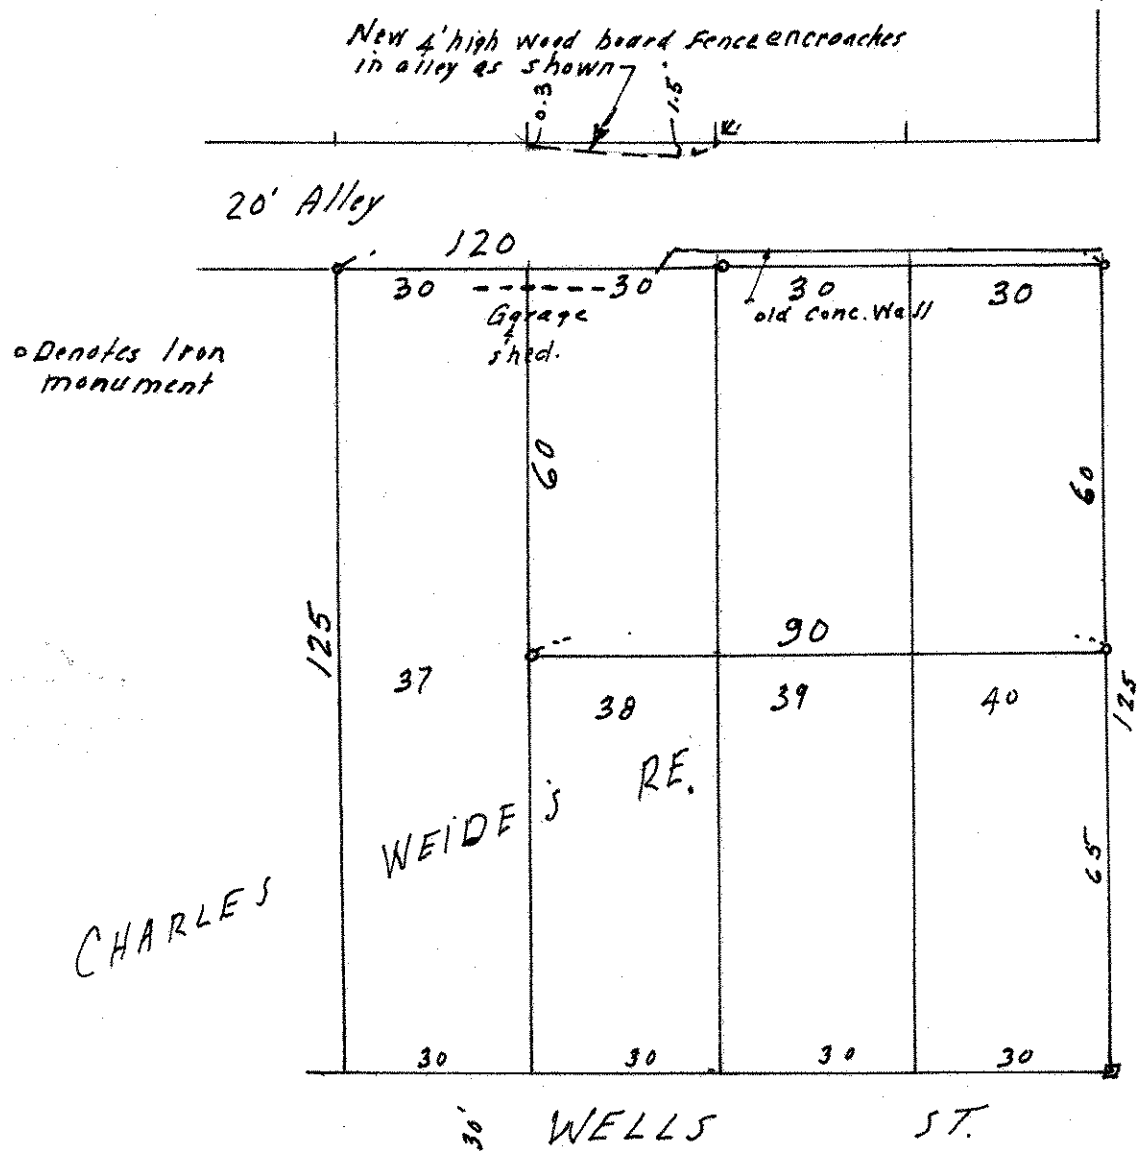 New 4' high wood board fence encroaches
in alley as shown
0.3
1.5
20' Alley
120
30
30
30
30
Garage
&
shed.
old conc. Wall
o Denotes Iron
monument
60
60
125
90
37
38
39
40
125
RE.
WEIDE'S
CHARLES
65
30
30
30
30
30'
WELLS
ST.